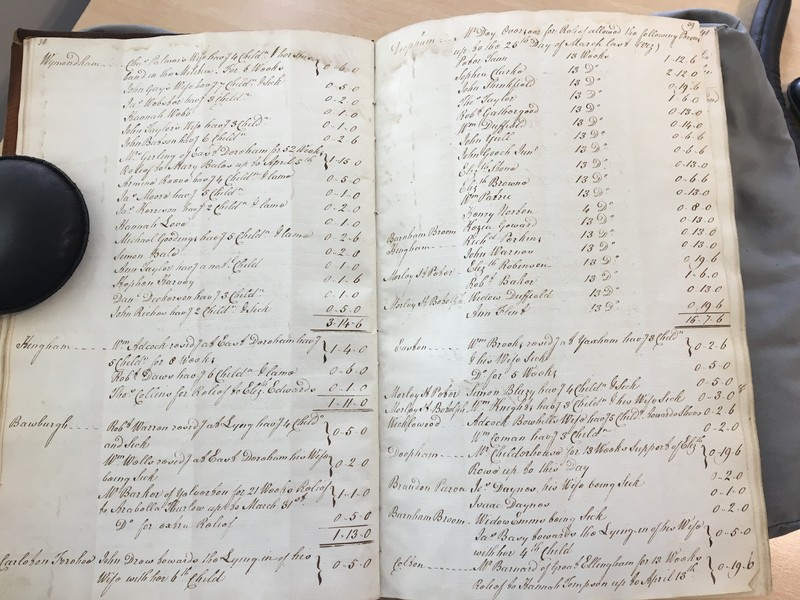 38
Wymondham Chas. Palmers Wife hav.g 4 Child.n & her Son
and in the Militia. For 6 Weeks } 0-6-0
John Gays Wife hav.g Child.n & Sick 0-5-0
Ja.s Webster hav.g 3 Child.n 0-2-0
Hannah Webb 0-1-0
John Taylors Wife hav.g 3 Child.n 0-1-0
John Barson hav.g 6 Child.n 0-2-6
M.r Girling of East Dereham for 52 Weeks
Relief to Mary Bales up to April 5.th } 1-15-0
Armine Reeve hav.g 4 Child.n & lame 0-5-0
Ja.s Moore hav.g 5 Child.n 0-1-0
Jos. Harrison hav.g 2 Child.n & lame 0-2-0
Hannah Love 0-1-0
Michael Goodings hav.g 5 Child.n & lame 0-2-6
Simon Bale 0-2-0
Ann Taylor hav.g a nat.l Child 0-1-0
Stephen Harvey 0-1-6
Dan.l Dickerson hav.g 3 Child.n 0-1-0
John Riches hav.g 2 Child.n & Sick 0-5-0
3-14-6
Hingham W.m Adcock resid.g at East Dereham hav.g
5 Child.n for 8 Weeks } 1-4-0
Rob.t Daws hav.g 6 Child.n & lame 0-6-0
Tho.s Collins for Relief to Eliz.th Edwards 0-1-0
1-11-0
Bawburgh Rob.t Warren resid.g at Lyng hav.g 4 Child.n
and Sick } 0-5-0
W.m Walls resid.g at East Dereham his Wife
being Sick } 0-2-0
M.r Barker of Yelverton for 21 Weeks Relief
to Arabella Thurlow up to March 31.st } 1-1-0
D.o for extra Relief 0-5-0
1-13-0
Carleton Forehoe John Drew towards the Lying-in of his
Wife with her 6.th Child } 0-5-0
39
Deopham M.r Day Overseer for Relief allowed the following Persons
up to the 25.th Day of March last
Peter Tann 13 Weeks 1-12-6
Sophia Clarke 13 D.o 2-12-0
John Shinkfield 13 D.o 0-19-6
Tho.s Taylor 13 D.o 1-6-0
Rob.t Gathergood 13 D.o 0-13-0
W.m Duffield 13 D.o 0-14-0
John Gull 13 D.o 0-6-6
John Gooch Jun.r 13 D.o 0-6-6
Eliz.th Stone 13 D.o 0-13-0
Eliz.th Browne 13 D.o 0-6-6
W.m Patrie 13 D.o 0-13-0
Henry Norton 4 D.o 0-8-0
Kezia Goward 13 D.o 0-13-0
Barnham Broom Rich.d Perkins 13 D.o 0-13-0
Hingham John Warnor 13 D.o 0-13-0
Eliz.th Robinson 13 D.o 0-19-6
Morley S.t Peter Rob.t Baker 13 D.o 1-6-0
Widow Duffield 13 D.o 0-13-0
Morley S.t Botolph Ann Flint 13 D.o 0-19-6
15-7-6
Easton W.m Brooks resid.g at Yaxham hav.g 8 Child.n
& his Wife Sick } 0-2-6
D.o for 5 Weeks 0-5-0
Morley S.t Peter Simon Blazy hav.g 4 Child.n & Sick 0-5-0
Morley S.t Botolph W.m Knights hav.g 3 Child.n & his Wife Sick 0-3-0
Wicklewood Adcock Bothells Wife hav.g 5 Child.n towards Shoes 0-2-6
W.m Coman hav.g 3 Child.n 0-2-0
Deopham M.r Childerhouse for 13 Weeks Support of Eliz.th
Reeve up to this Day } 0-19-6
Brandon Parva Ja.s Daynes, his Wife being Sick 0-2-0
Isaac Daynes 0-1-0
Barnham Broom Widow Emms being Sick 0-2-0
Ja.s Basy towards the Lying-in of his Wife
with her 4.th Child } 0-5-0
Colton M.r Barnard of Great Ellingham for 13 Weeks
Relief to Hannah Tompson up to April 13.th } 0-19-6